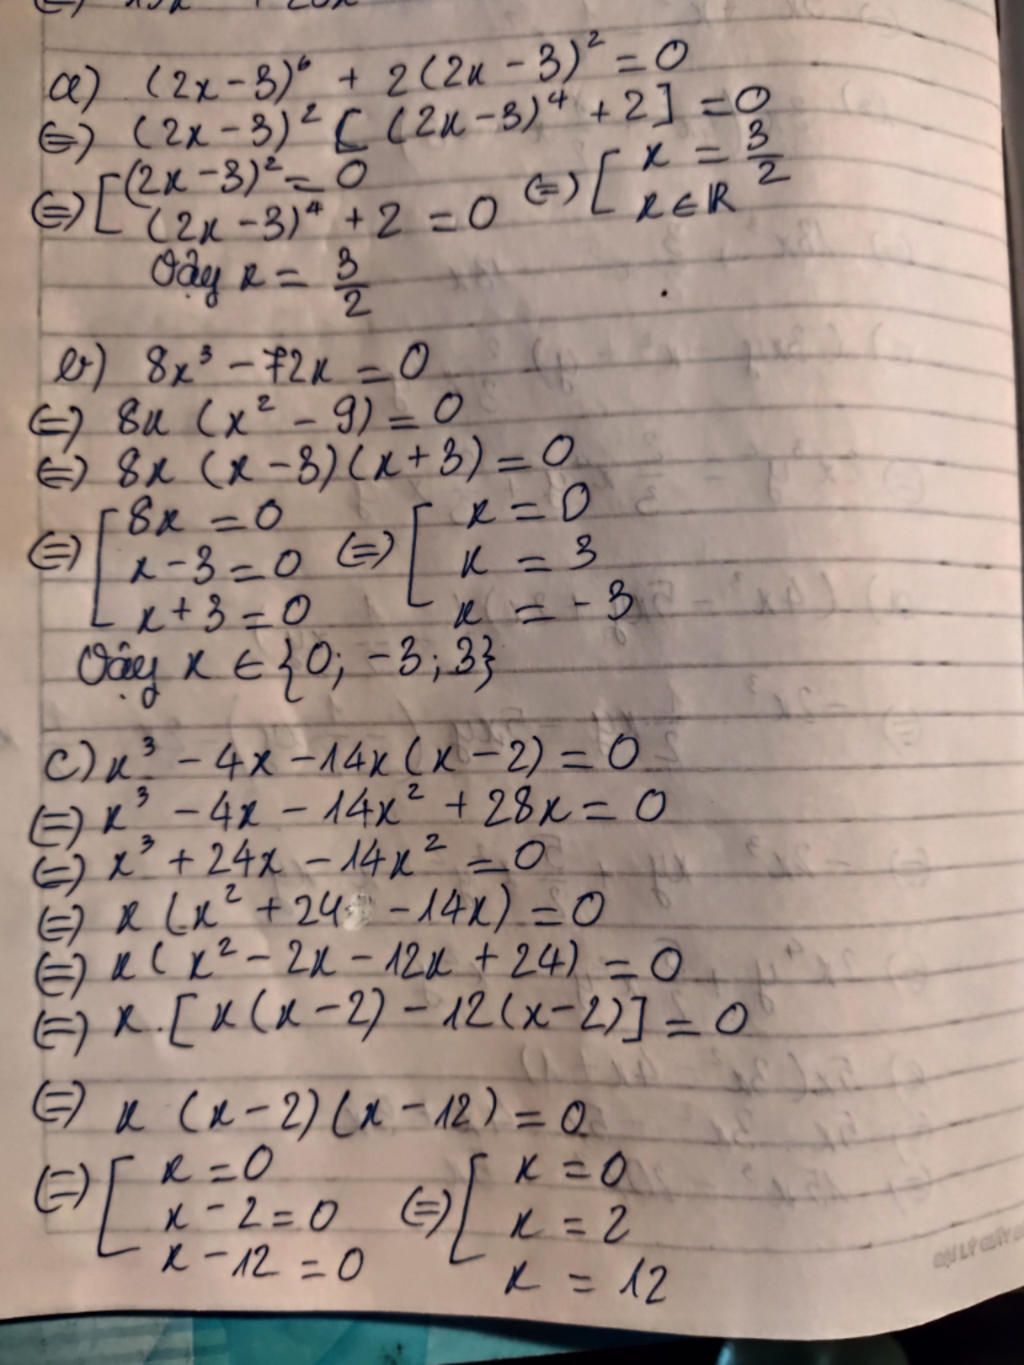 a) (2x - 3)⁶ + 2(2x - 3)² = 0
(=) (2x - 3)² [ (2x - 3)⁴ + 2] = 0
(=) [ (2x - 3)² = 0 (=) [ x = 3/2
(2x - 3)⁴ + 2 = 0 x ∈ R
Vậy x = 3/2
b) 8x³ - 72x = 0
(=) 8x (x² - 9) = 0
(=) 8x (x - 3)(x + 3) = 0
(=) [ 8x = 0 (=) [ x = 0
x - 3 = 0 x = 3
x + 3 = 0 x = -3
Vậy x ∈ {0; -3; 3}
c) x³ - 4x - 14x (x - 2) = 0
(=) x³ - 4x - 14x² + 28x = 0
(=) x³ + 24x - 14x² = 0
(=) x (x² + 24 - 14x) = 0
(=) x ( x² - 2x - 12x + 24) = 0
(=) x . [ x (x - 2) - 12 (x - 2)] = 0
(=) x (x - 2) (x - 12) = 0
(=) [ x = 0 (=) [ x = 0
x - 2 = 0 x = 2
x - 12 = 0 x = 12